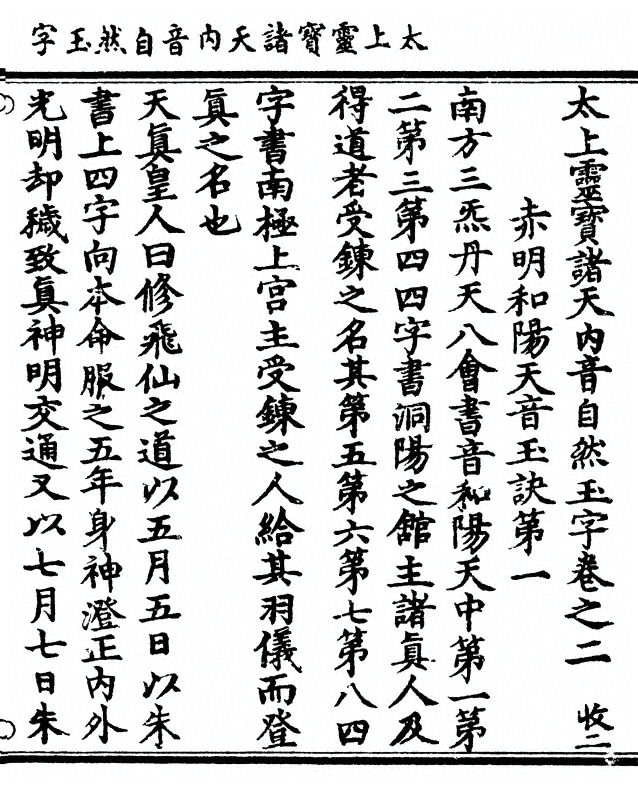 太上靈寶諸天內音自然玉字
太上靈寶諸天內音自然玉字卷之二 收二
赤明和陽天音玉訣第一
南方三炁丹天八會書音和陽天中第一第
二第三第四四字書洞陽之館主諸眞人及
得道老受鍊之名其第五第六第七第八四
字書南極上宮主受鍊之人給其羽儀而登
眞之名也
天眞皇人曰修飛仙之道以五月五日以朱
書上四字向本命服之五年身神澄正內外
光明却穢致眞神明交通又以七月七日朱